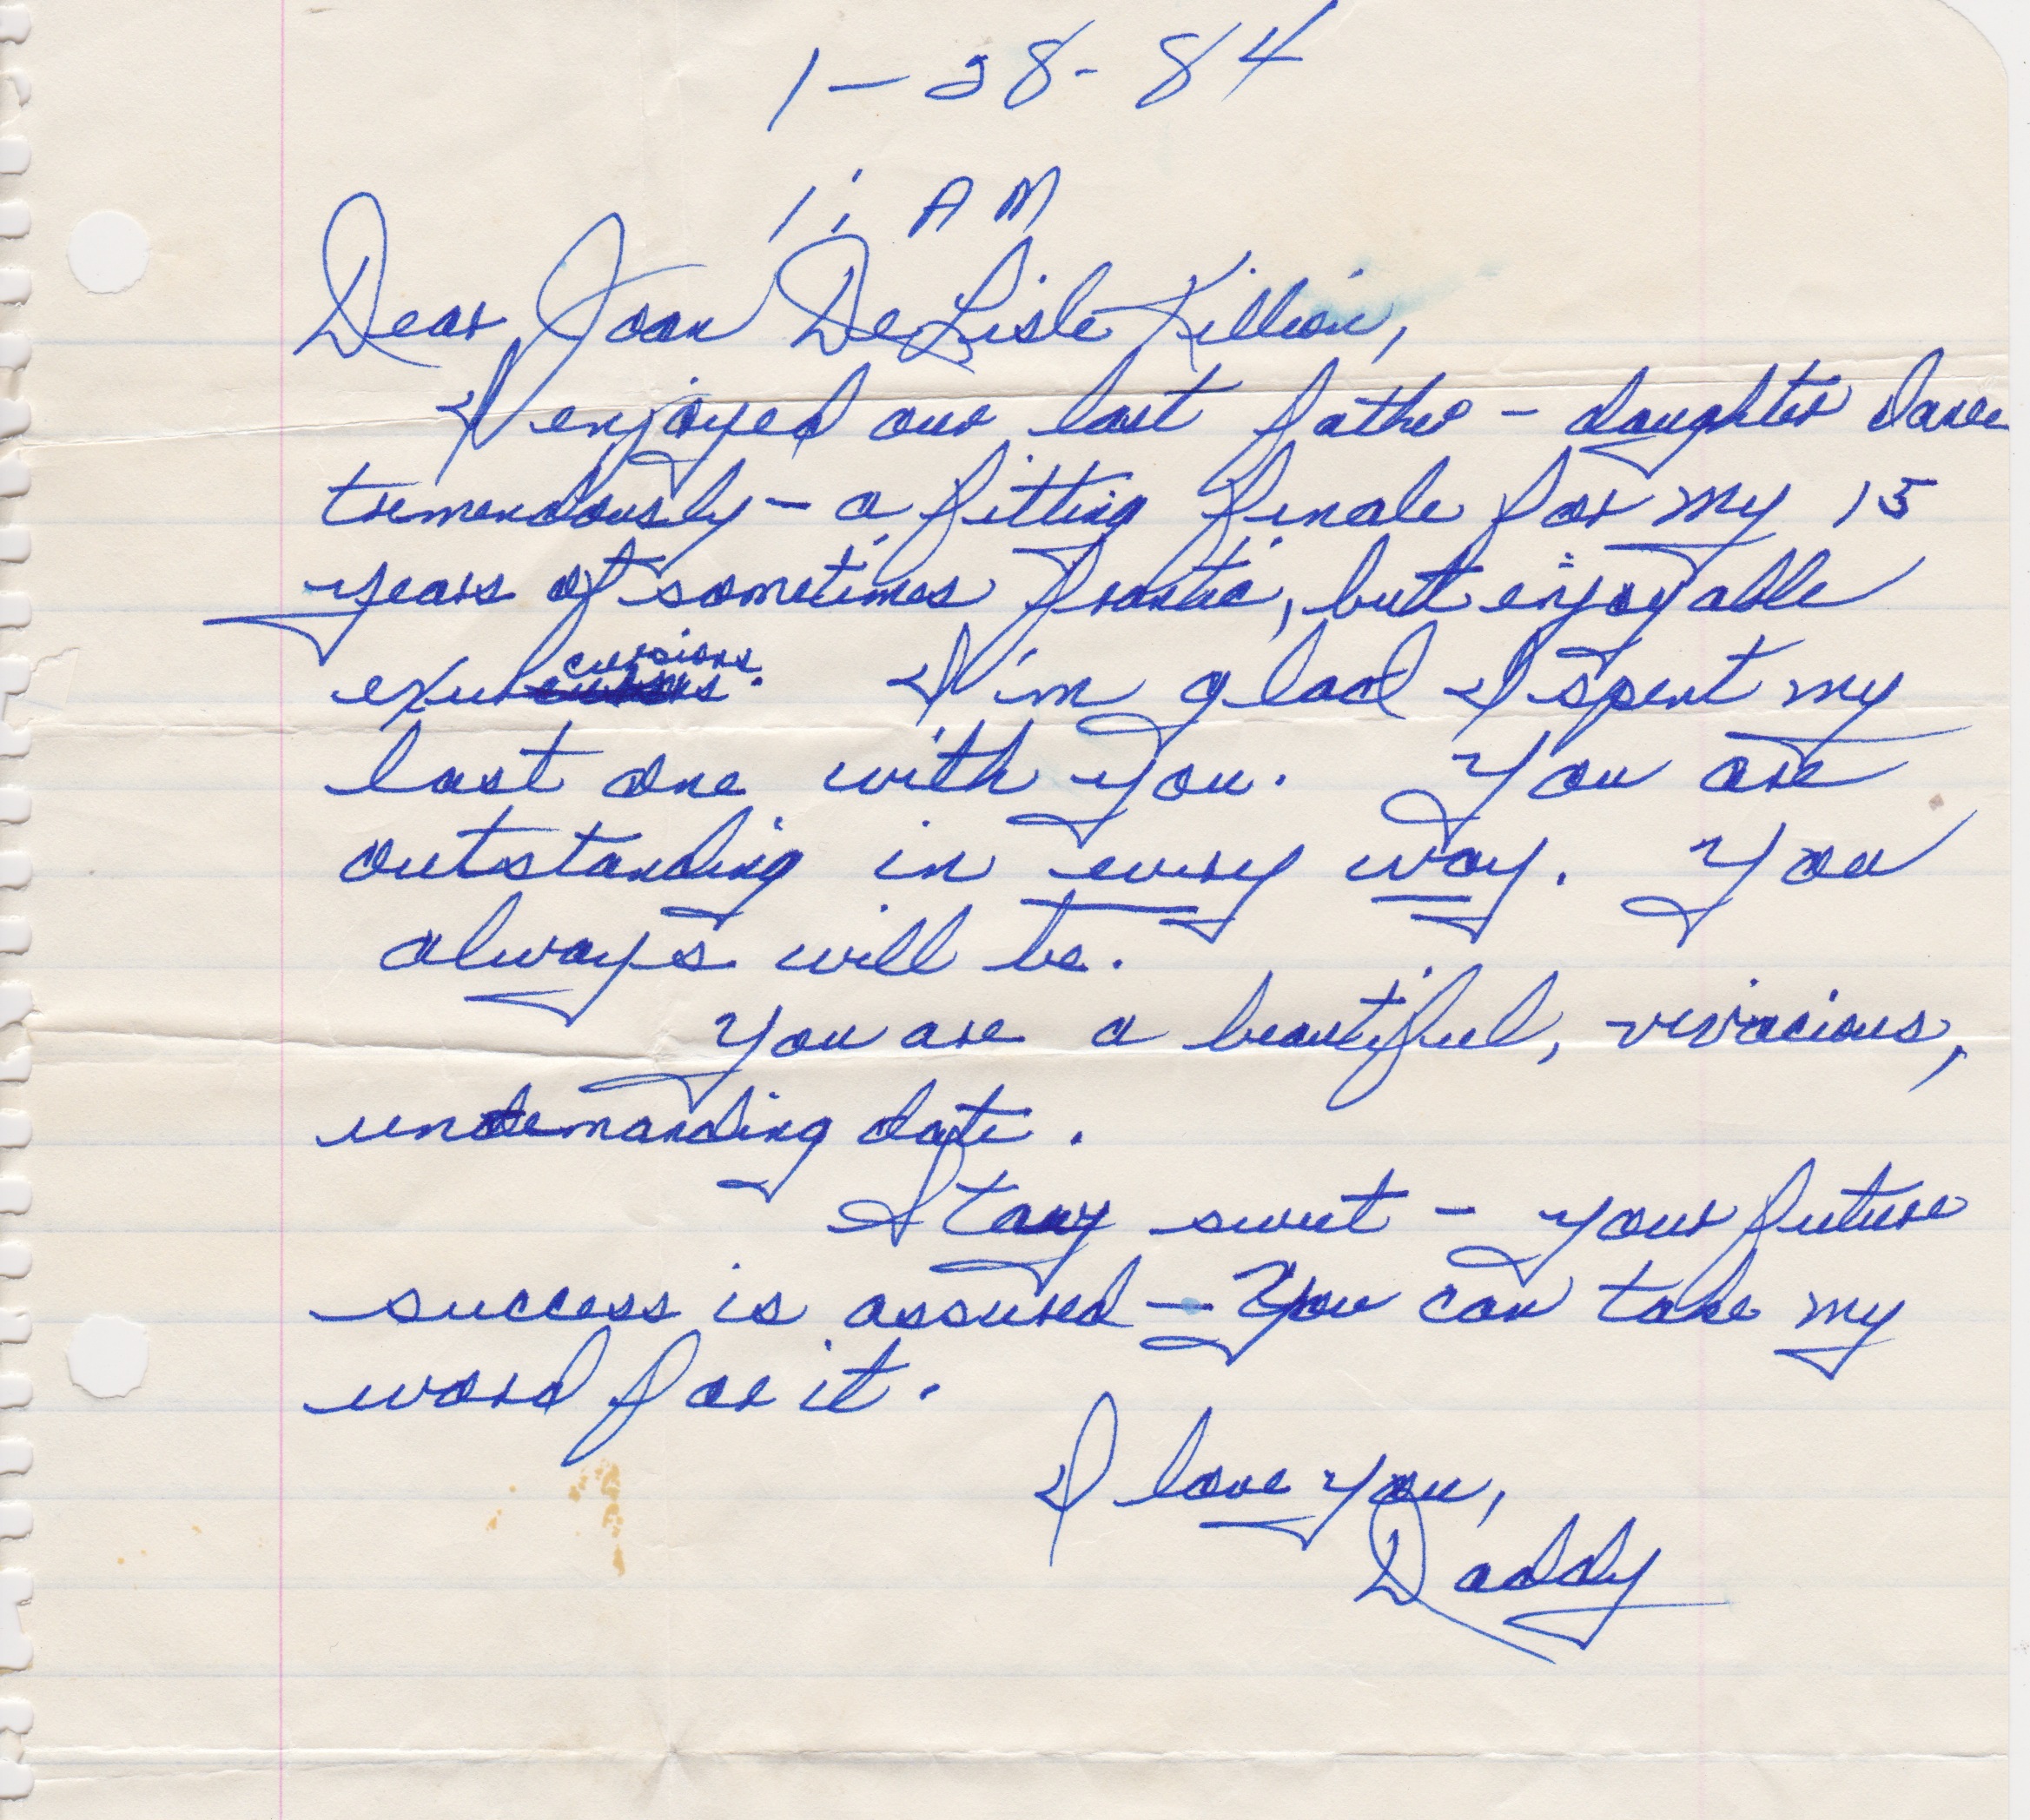 1-28-84
11 AM
Dear Joan DeLisle Killion,
I enjoyed our last father - daughter dance
tremendously - a fitting finale for my 15
years of sometimes frantic, but enjoyable
excursions. I'm glad I spent my
last one with you. You are
outstanding in every way. You
always will be.
You are a beautiful, vivacious,
undemanding date.
Stay sweet - your future
success is assured - You can take my
word for it.
I love you,
Daddy